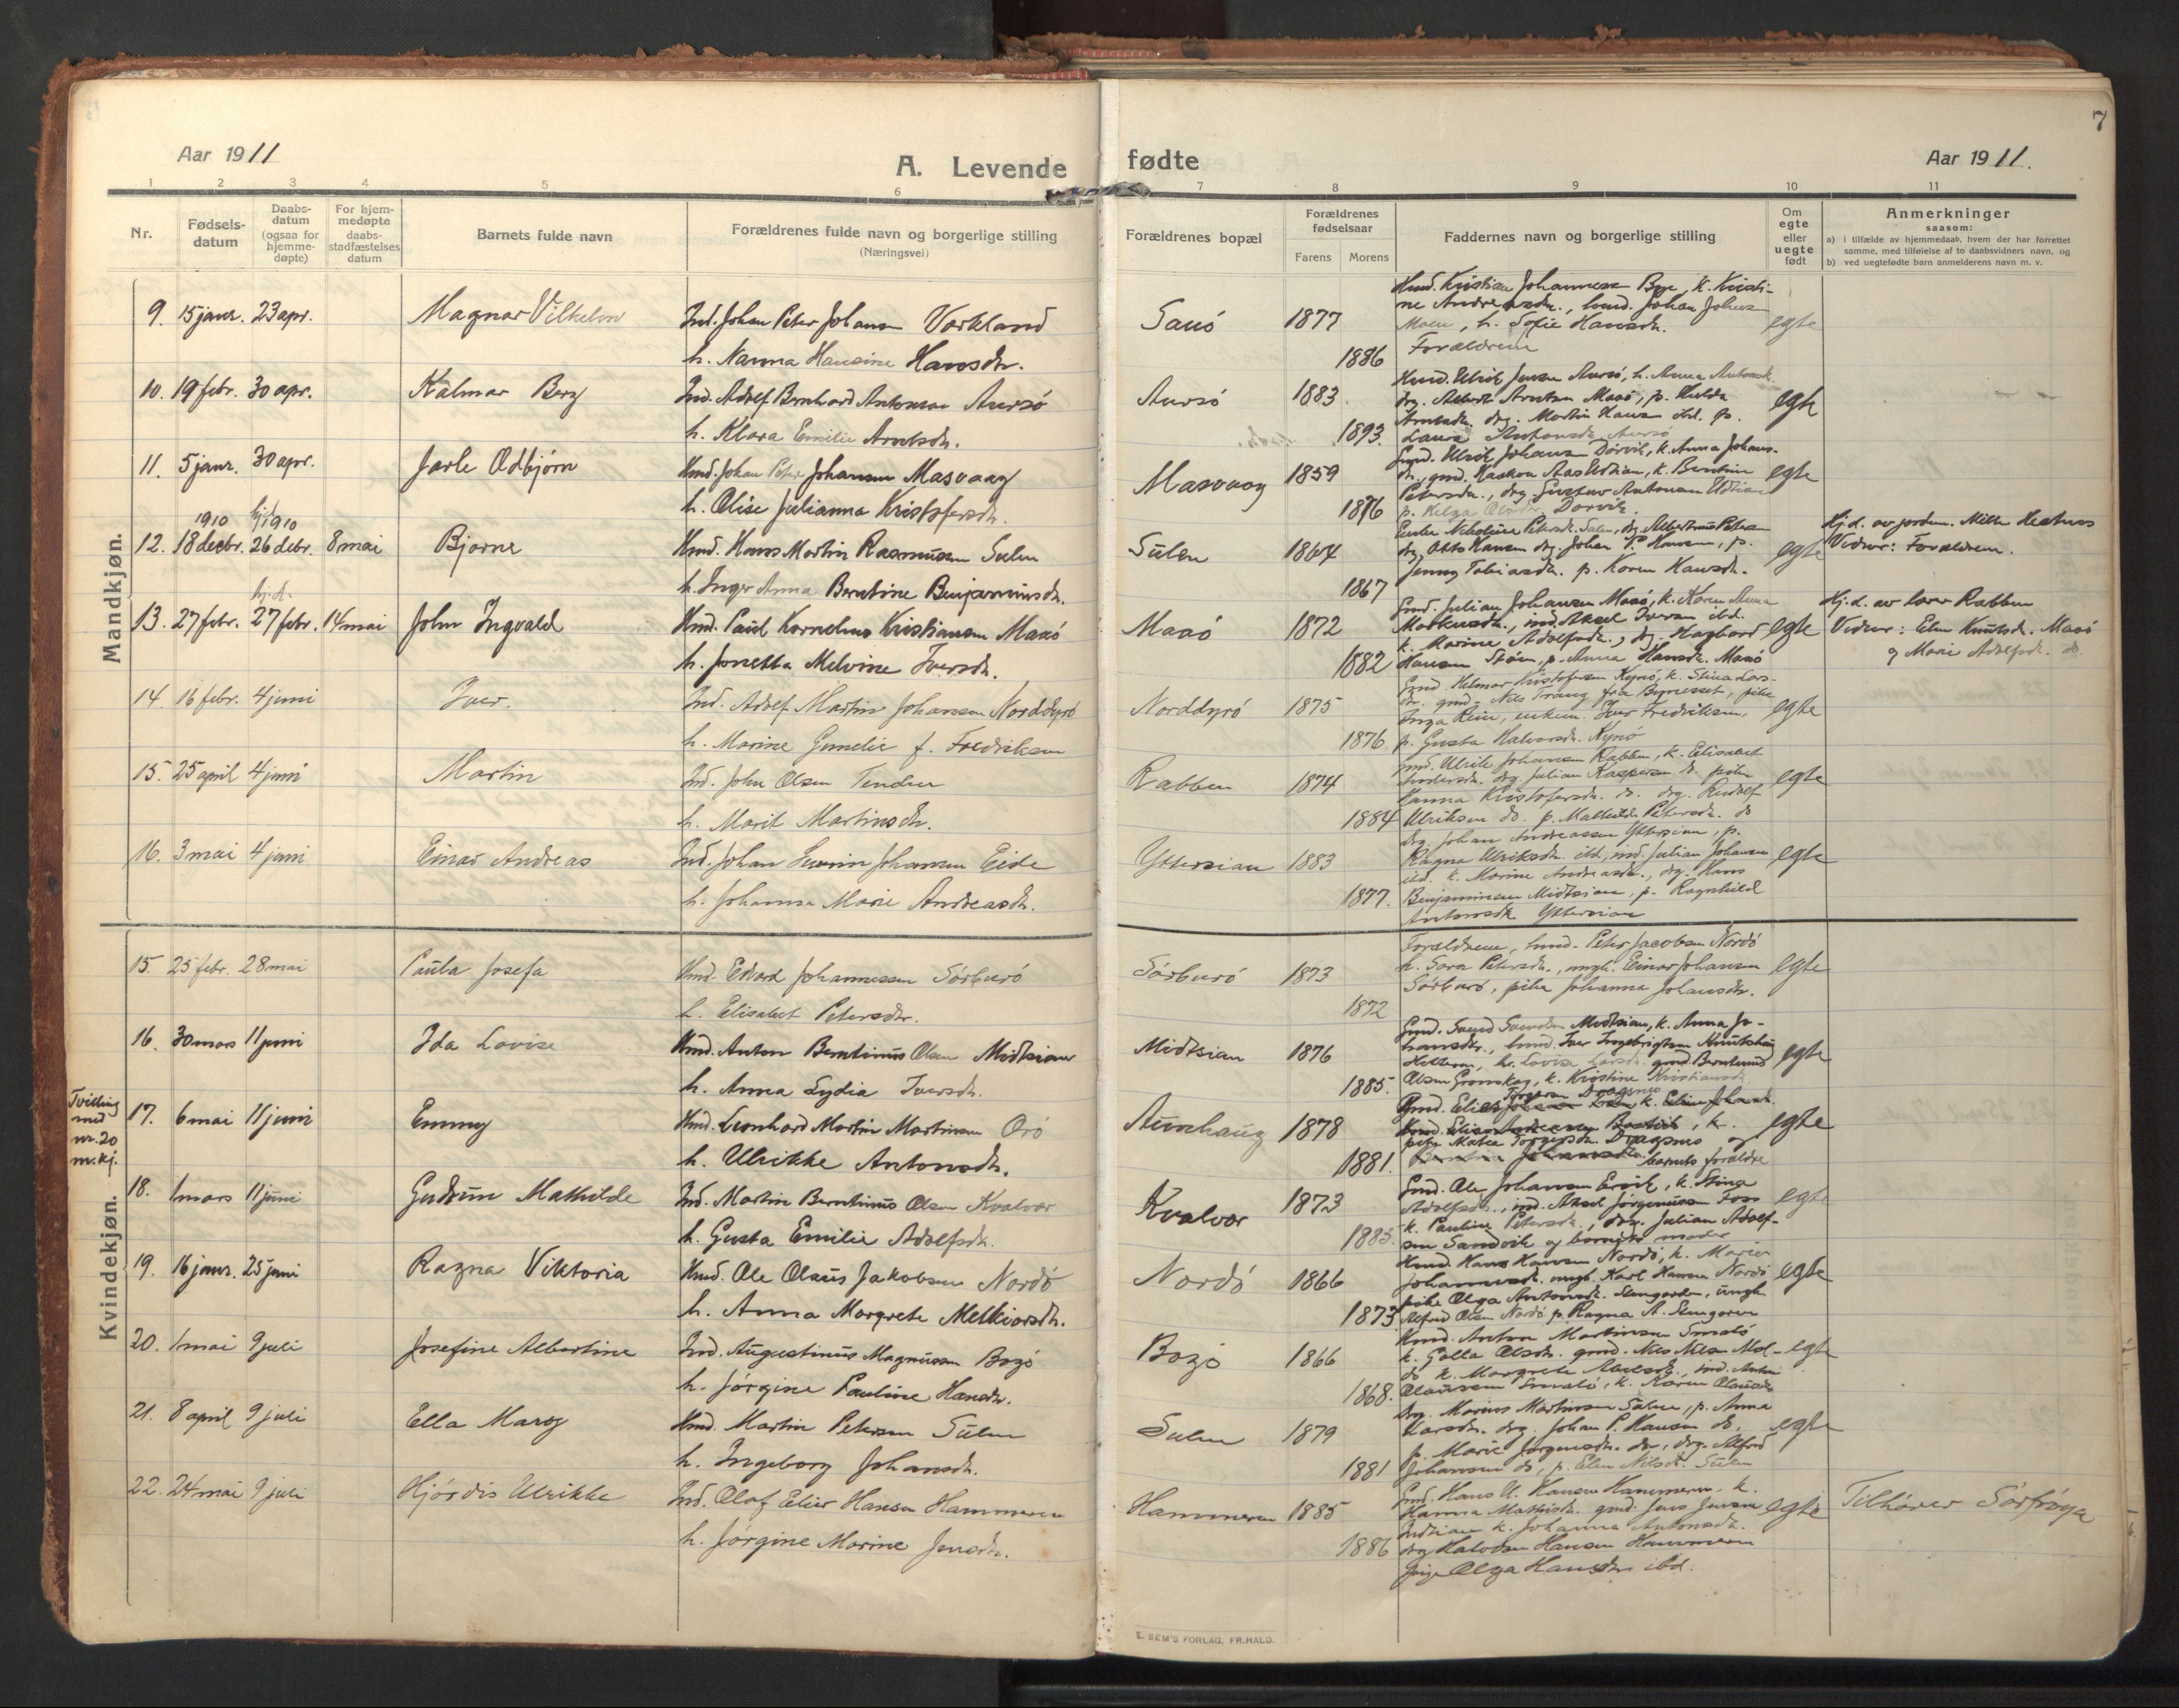 7
Aar 1911
A. Levende fødte
Aar 1911.
1 2 3 4 5 6 7 8 9 10 11
Nr.
Fødsels-
datum
Daabs-
datum
(ogsaa for
hjemme-
døpte)
For hjem-
medøpte
daabs-
stadfæstelses
datum
Barnets fulde navn
Forældrenes fulde navn og borgerlige stilling
(Næringsvei)
Forældrenes bopæl
Forældrenes
fødselsaar
Farens Morens
Faddernes navn og borgerlige stilling
Om
egte
eller
uegte
født
Anmerkninger
saasom:
a) i tilfælde av hjemmedaab, hvem der har forrettet
samme, med tilføielse af to daabsvidners navn, og
b) ved uegtefødte barn anmelderens navn m. v.
Mandkjøn.
9. 15 janr. 23 apr. Magnar Vilhelm Ind. Johan Peter Johansen Vorkland
h. Nanna Hansine Hansdtr.
1877 egte
1886
Hmd. Kristian Johannesen Bye, k. Kristi-
ne Andreasdtr., hmd. Johan Johnsen
Moen, h. Sofie Hansdtr.
Forældrene
10. 19 febr. 30 apr. Kalmar Berg Ind. Adolf Bernhard Antonsen Aursö
h. Klara Emilie Arntsdtr.
Aursö 1883 egte
1893.
Hmd. Ulrik Jensen Aursö, h. Anna Antonsdtr.
drg. Albert Arntsen Maaö, p. Hulda
Arntsdtr. drg. Martin Hansen ibd. p.
Laura Antonsdtr. Aursö
11. 5 janr. 30 apr. Jarle Odbjörn Hmd. Johan Peter Johansen Masvaag
h. Olise Julianna Kristofersdtr.
Masvaag 1859 egte
1876
Gmd. Ulrik Johansen Dorvik, k. Anna Johans-
dtr., gmd. Haakon Aas Uttian, k. Berntine
Petersdtr., drg. Gustav Antonsen Uttian
p. Helga Olsdtr. Dorvik.
1910 hjd. 1910
12. 18 decbr. 26 debr. 8 mai Bjarne Hmd. Hans Martin Rasmussen Sulen
h. Inger Anna Berntine Benjaminsdtr.
Sulen 1864 egte
1867
Enke Nikoline Petersdtr. Sulen, drg. Albert Petersen
drg. Otto Hansen drg. Johan P. Hansen, p.
Jenny Tobiasdtr. p. Karen Hansdtr.
Hj.d. av jordm. Milla
Vidner: Forældrene.
hj.d.
13. 27 febr. 27 febr. 14 mai John Ingvald Hmd. Paul Kornelius Kristiansen Maaö
h. Jonetta Melvine Iversdtr.
Maaö 1872 egte
1882
Gmd. Julian Johansen Maaö, k. Karen Anna
Markusdtr., ind. Aksel Iversen ibd.
k. Marine Adolfsdtr., drg. Hagbard
Hansen Stöen, p. Anna Hansdtr. Maaö
Hj.d. av lærer Rabben
Vidner: Elen Knutsdtr. Maaö
og Marie Adolfsdtr. do.
14. 16 febr. 4 juni Iver. Ind. Adolf Martin Johansen Norddyrö
h. Marine Gunelie f. Fredriksen
Norddyrö 1875 egte
1876.
Gmd. Helmer Kristofersen Kyrö, k. Stina Lars-
dtr. gmd. Nils Trang fra Bynesset, pike
Inga Rein, enkem. Iver Fredriksen,
p. Gusta Halvorsdtr. Kyrö
15. 25 april 4 juni Martin Ind. John Olsen Tenden
h. Marit Martinsdtr.
Rabben 1874 egte
1884
Gmd. Ulrik Johansen Rabben, k. Elisabet
Andersdtr. drg. Julian Kaspersen do. pike
Hanna Kristofersdtr. do. drg. Rudolf
Ulriksen do. p. Mathilde Petersdtr. do
16. 3 mai 4 juni Einar Andreas Ind. Johan Severin Johansen Eide
h. Johanna Marie Andreasdtr.
Yttersian 1883 egte
1877.
drg. Johan Andreassen Yttersian, p.
Ragna Ulriksdtr. ibd., ind. Julian Johansen
ibd. k. Marine Andreasdtr., drg. Hans
Benjaminsen Midtsian, p. Ragnhild
Antonsdtr. Yttersian
Kvindekjøn.
15. 25 febr. 28 mai Paula Josefa Hmd. Edvard Johannessen Sörburö
h. Elisabet Petersdtr.
Sörburö 1873 egte
1872
Forældrene, hmd. Peter Jacobsen Nordö
h. Sara Petersdtr., ungk. Einar Johansen
Sörburö, pike Johanna Johansdtr.
16. 30 mars 11 juni Ida Lovise Hmd. Anton Berntinus Olsen Midtsian
h. Anna Lydia Iversdtr.
Midtsian 1876 egte
1885.
Gmd. Sevrin Midtsian, k. Anna Jo-
hansdtr., hmd. Iver Ingebrigtsen Knutshaug
Hitteren, h. Lovise Larsdtr. gmd. Berntinus
Olsen Gronskag, k. Kristine Kristiansdtr.
Tvilling
med
nr. 20
m.kj.
17. 6 mai 11 juni Emmy Hmd. Leonhard Martin Martinsen Orö
h. Ulrikke Antonsdtr.
Aunhaug 1878 egte
1881.
Torgersen Dragsnes
Gmd. Elias k. Eline Johansdtr.
pike Matea Torgersdtr. Dragsnes og
barnets forældre
18. 1 mars 11 juni Gudrun Mathilde Ind. Martin Berntinus Olsen Kvalvær
h. Gusta Emilie Adolfsdtr.
Kvalvær 1873 egte
1885.
Gmd. Ole Johansen Ervik, k. Stina
Adolfsdtr., ind. Aksel Jörgensen Foss
k. Pauline Petersdtr., drg. Julian Adolf-
sen Sandvik og barnets moder
19. 16 janr. 25 juni Ragna Viktoria Hmd. Ole Olaus Jakobsen Nordö
h. Anna Margrete Melkiorsdtr.
Nordö 1866 egte
1873
Hmd. Hans Hansen Nordö, h. Marie
Johannesdtr. ungk. Karl Hansen Nordö
pike Olga Antonsdtr. Stengarden, ungk.
Alfred Olsen Nordö p. Ragna A. Stengarden
20. 1 mai 9 juli Josefine Albertine Ind. Augustinus Magnussen Bogö
h. Jörgine Pauline Hansdtr.
Bogö 1866 egte
1868.
Hmd. Anton Martinsen Smalö
k. Golla Olsdtr. gmd. Nils Nilsen
do k. Margrete Akselsdtr., ind. Anton
Olaussen Smalö, k. Karen Olausdtr.
21. 8 april 9 juli Ella Marg Hmd. Martin Petersen Sulen
h. Ingeborg Johansdtr.
Sulen 1879 egte
1881
drg. Marius Martinsen Sulen, p. Anna
Larsdtr. drg. Johan P. Hansen do.
p. Marie Jörgensdtr. do, drg. Alfred
Johansen do, p. Elen Nilsdtr. Sulen
22. 24 mai 9 juli Hjördis Ulrikke Ind. Olaf Elier Hansen Hammeren
h. Jörgine Marine Jensdtr.
Hammeren 1885 egte
1886
Gmd. Hans U. Hansen Hammeren, k.
Hanna Mathisdtr. gmd. Jens Jensen
Indtian k. Johanna Antonsdtr.
drg. Halvdan Hansen Hammeren
pige Olga Hansdtr. ibd.
Tilhörer Sörfröya
E. SEM'S FORLAG, FR.HALD.